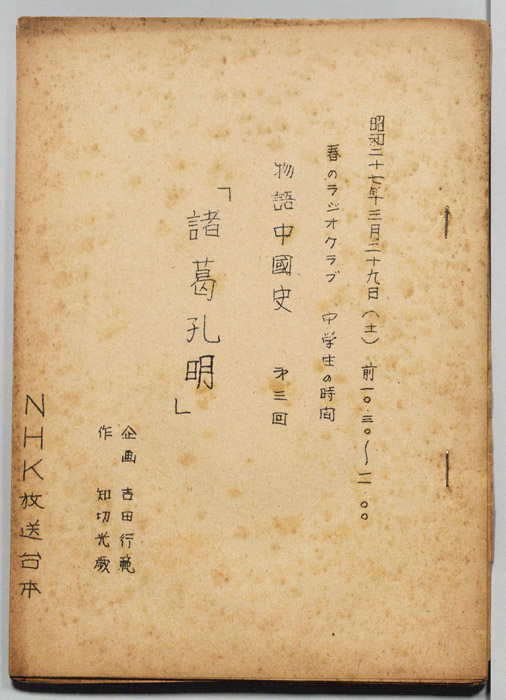 昭和二十七年三月二十九日（土） 前一〇.三〇〜一一.〇〇
春のラジオクラブ 中学生の時間
物語中國史 第三回
「諸葛孔明」
企画 吉田行範
作 知切光歳
NHK放送台本